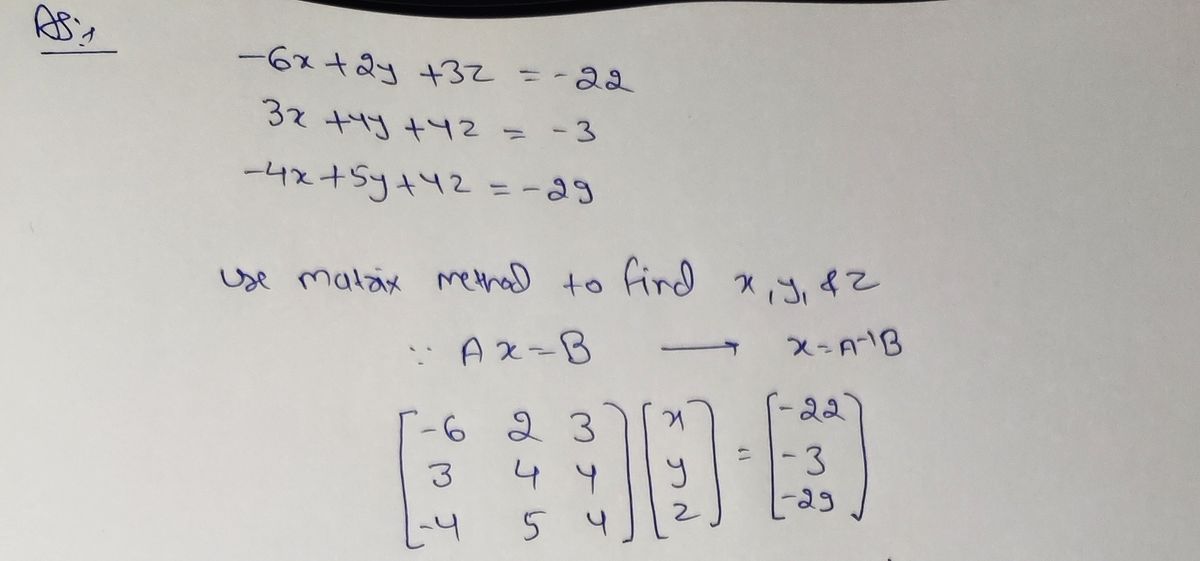 AS:1
-6x + 2y + 3z = -22
3x + 4y + 4z = -3
-4x + 5y + 4z = -29
use matrix method to find x, y, & z
∵ A x = B → x = A⁻¹B
[-6 2 3] [x] = [-22]
[3 4 4] [y] = [-3]
[-4 5 4] [z] = [-29]